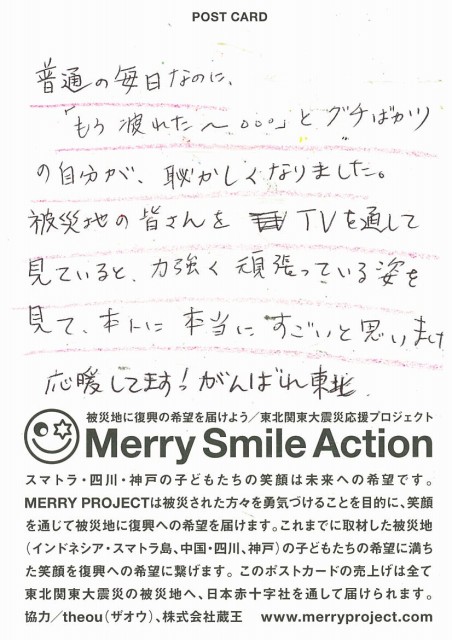 POST CARD
普通の毎日なのに、
「もう疲れた〜。。。」とグチばかり
の自分が、恥かしくなりました。
被災地の皆さんを TVを通して
見ていると、力強く頑張っている姿を
見て、本トに本当にすごいと思います
応暖してます!がんばれ東北
被災地に復興の希望を届けよう/東北関東大震災応援プロジェクト
Merry Smile Action
スマトラ・四川・神戸の子どもたちの笑顔は未来への希望です。
MERRY PROJECTは被災された方々を勇気づけることを目的に、笑顔
を通じて被災地に復興への希望を届けます。これまでに取材した被災地
(インドネシア・スマトラ島、中国・四川、神戸)の子どもたちの希望に満ち
た笑顔を復興への希望に繋げます。このポストカードの売上げは全て
東北関東大震災の被災地へ、日本赤十字社を通して届けられます。
協力/theou(ザオウ)、株式会社蔵王 www.merryproject.com